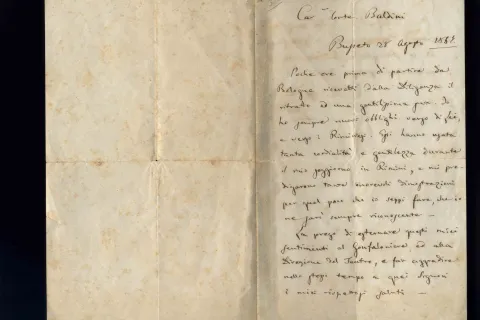 Car.mo Conte Baldini
Busseto 25 Agosto 1857
Poche ore prima di partire da
Bologna ricevetti dalla Diligenza il
ritratto ed una gentilissima sua. Io
ho sempre nuovi obblighi verso di Lei,
e verso i Riminesi. Essi hanno usata
tanta cordialità e gentilezza durante
il mio soggiorno in Rimini, e mi pro-
digarono tante dimostrazioni
per quel poco che io seppi fare, che io
ne sarò sempre riconoscente —
La prego di esternare questi miei
sentimenti al Gonfaloniere ed alla
Direzione del Teatro, e far aggradire
nello stesso tempo a quei Signori
i miei rispettosi saluti —